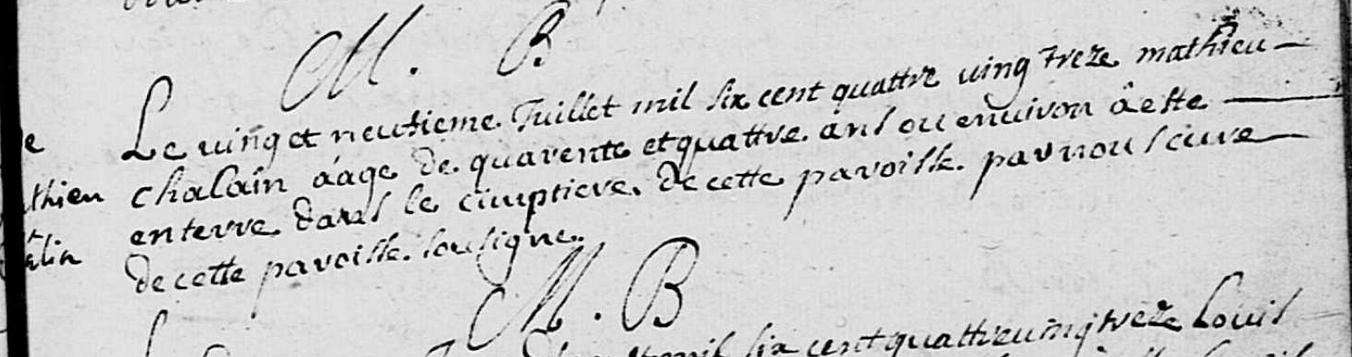 M. B
Le uingt et neufieme Juillet mil six cent quattre uing treze mathieu
e
chalain aâge de quarente et quattre ans ou enuiron â este
thieu
enterre dans le cimptiere de cette paroisse par nous cure
alin
de cette paroisse sousigne.
M. B
mil six cent quattreuing treze Louis